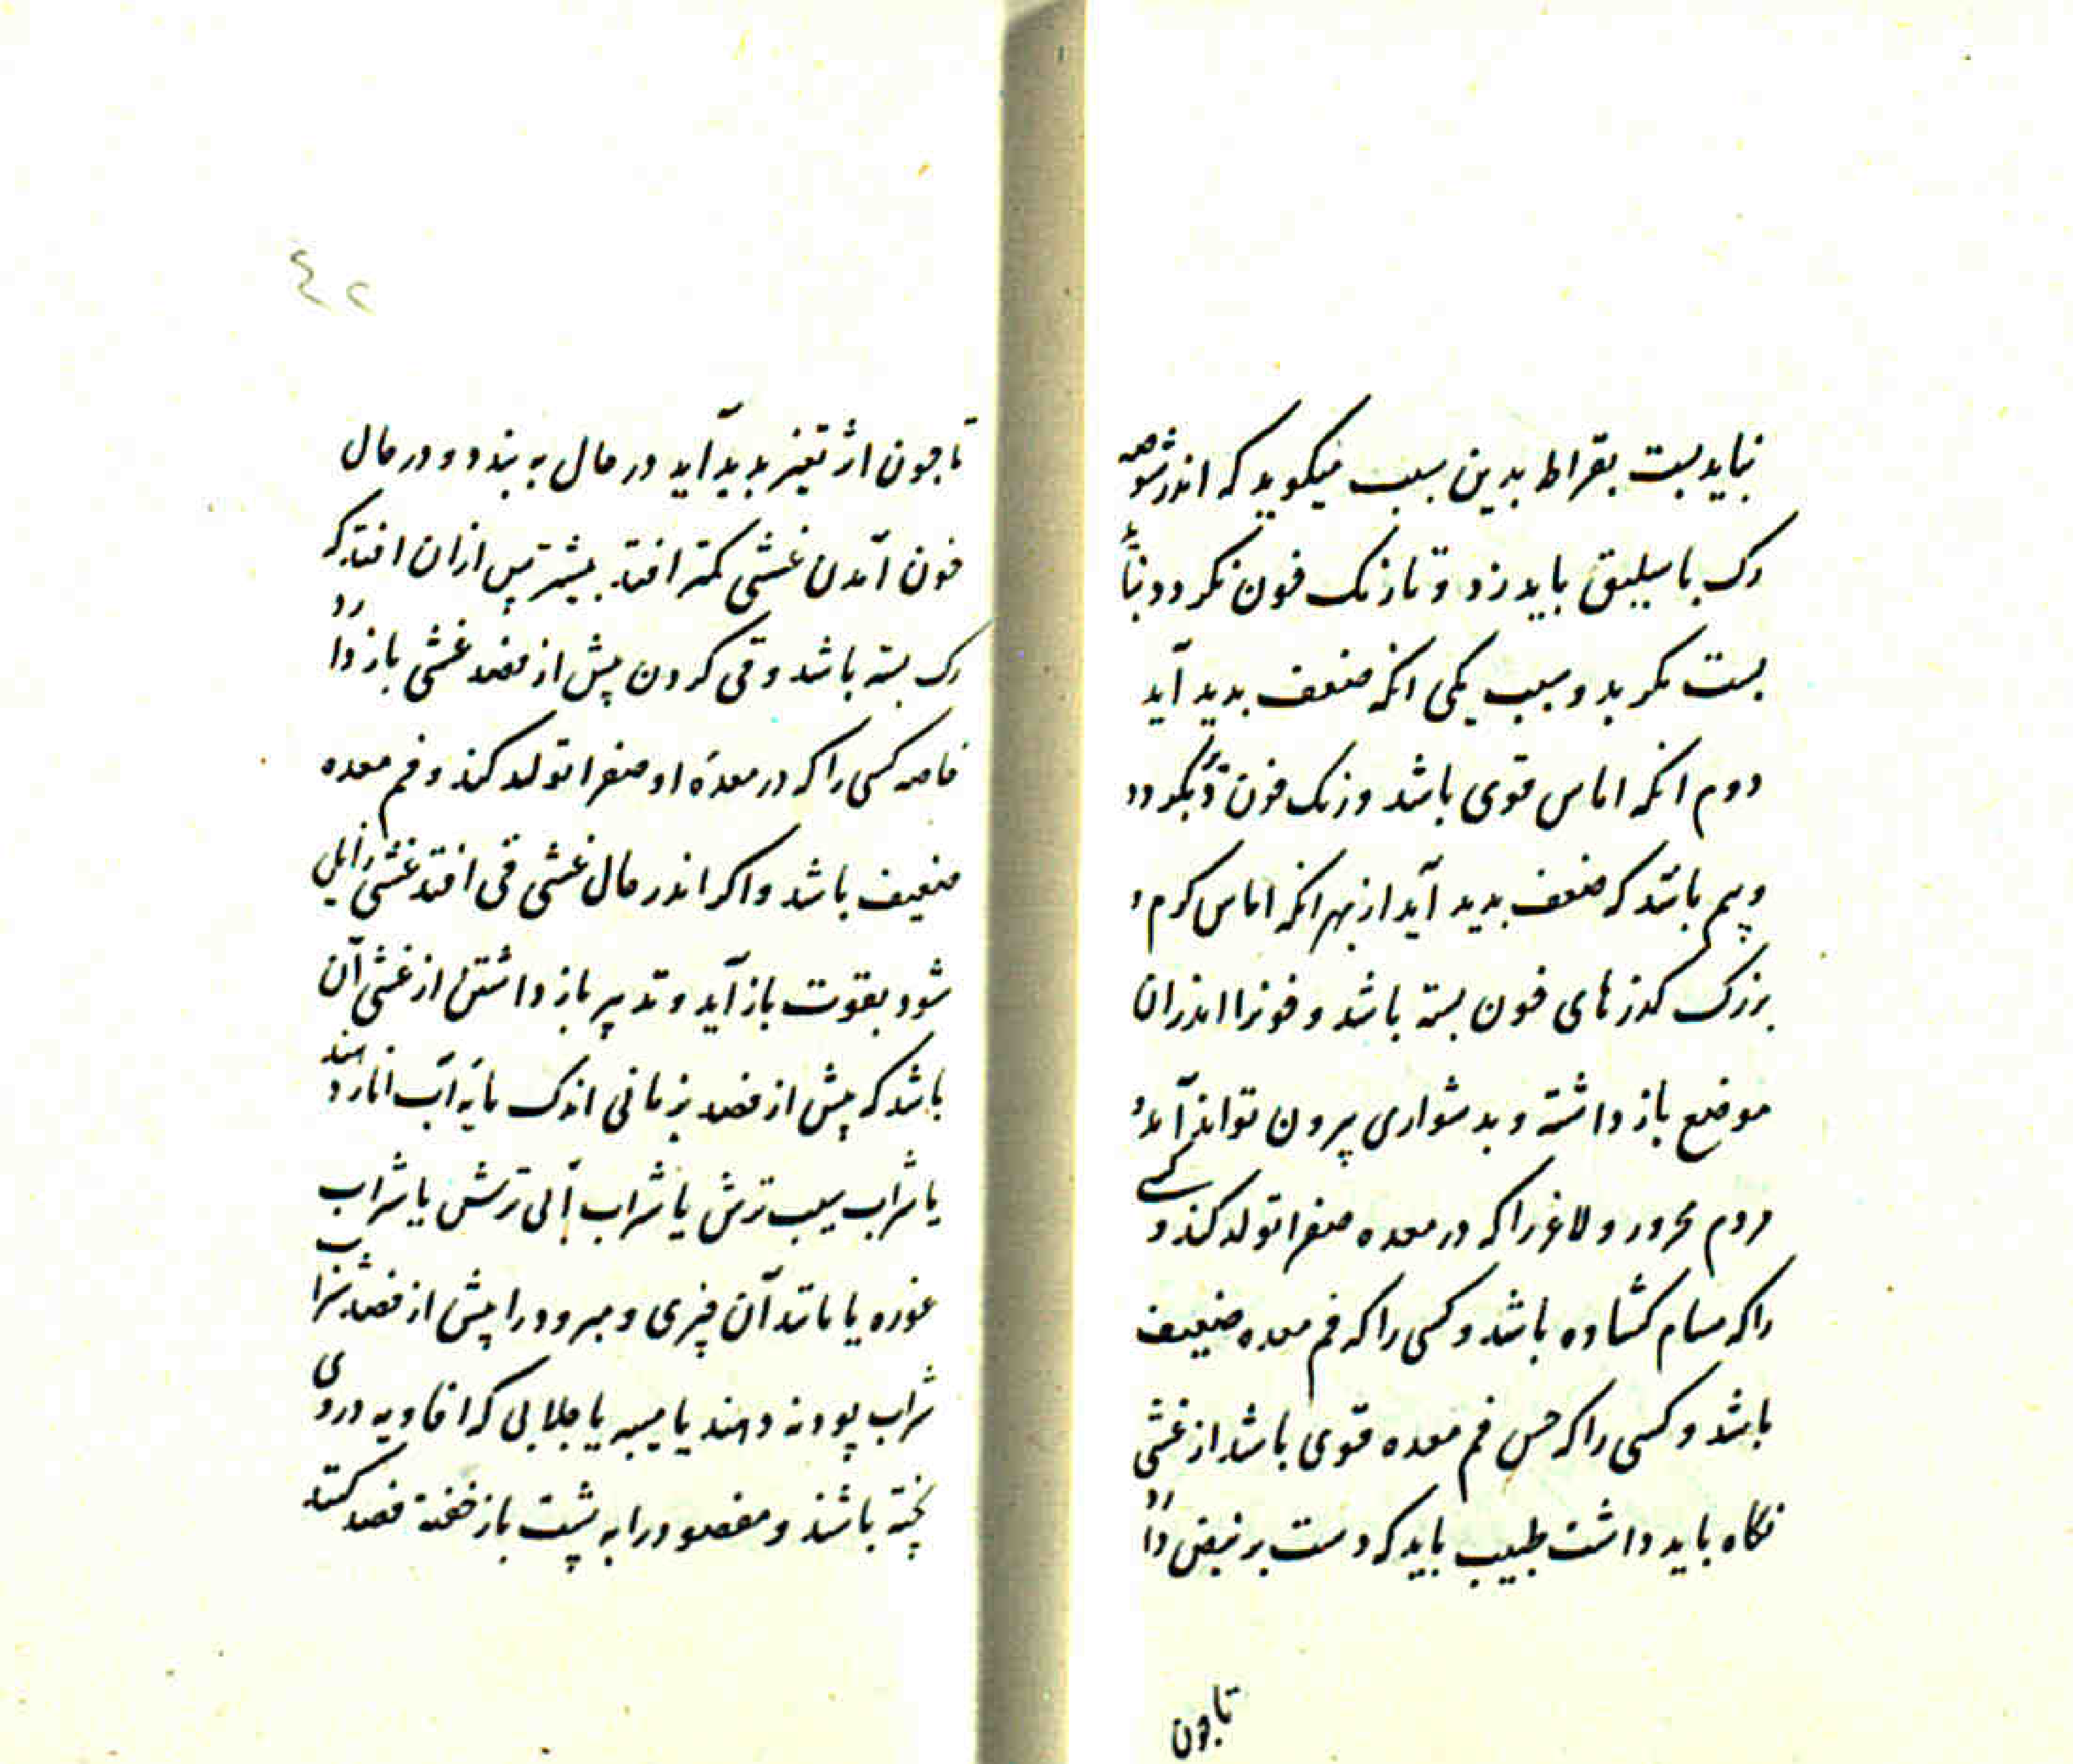 نباید بست بقراط بدین سبب میگوید که اندر شوصه
رک باسلیق باید زد و تا رنک خون نکردد نباید
بست مکر بدو سبب یکی انکه ضعف بدید آید
دوم انکه اماس قوی باشد و رنک خون بکردد
و بیم باشد که ضعف بدید آید از بهر انکه اماس کرم و
بزرک کذرهای خون بسته باشد و خونرا اندران
موضع باز داشته و بدشواری بیرون تواند آمد و
مردم محرور و لاغر را که در معده صفرا تولد کند و کسی
را که مسام کشاده باشد و کسی را که فم معده ضعیف
باشد و کسی را که حس فم معده قوی باشد از غشی
نکاه باید داشت طبیب باید که دست بر نبض دارد
تا جون
٤٢
تا جون اثر تغیر بدید آید در حال به بندد و در حال
خون آمدن غشی کمتر افتد بیشتر پس ازان افتد که
رک بسته باشد و قی کردن پیش از فصد غشی باز دارد
خاصه کسی را که در معدۀ او صفرا تولد کند و فم معده
ضعیف باشد و اکر اندر حال غشی قی افتد غشی زایل
شود بقوت باز آید و تدبیر باز داشتن از غشی آن
باشد که پیش از فصد بزمانی اندک مایه آب انار دهند
یا شراب سیب ترش یا شراب آبی ترش یا شراب
غوره یا مانند آن چیزی و مبرود را پیش از فصد شراب
شراب پودنه دهند یا میبه یا جلابی که افاویه در وی
پخته باشند و مفصود را به پشت باز خفته فصد کنند